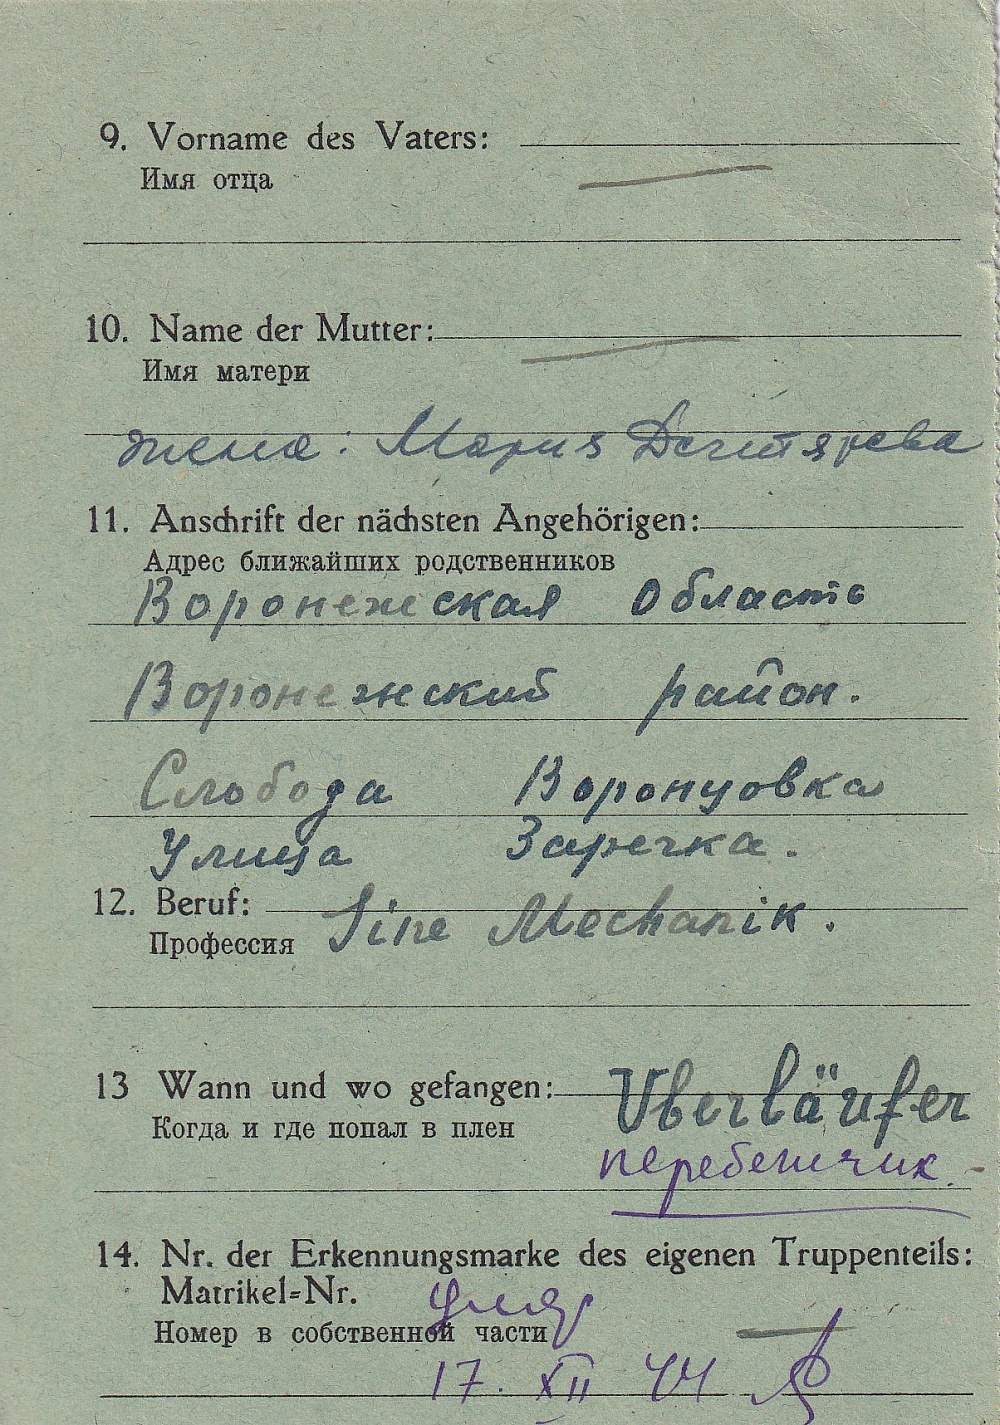 9. Vorname des Vaters:
Имя отца
10. Name der Mutter:
Имя матери
жена: Мария Дегтярева
11. Anschrift der nächsten Angehörigen:
Адрес ближайших родственников
Воронежская область
Воронежский район.
Слобода Воронцовка
Улица Заречка.
12. Beruf:
Профессия
Sine Mechanik.
13 Wann und wo gefangen:
Когда и где попал в плен
Uberläufer
перебежчик.
14. Nr. der Erkennungsmarke des eigenen Truppenteils:
Matrikel=Nr.
умер
Номер в собственной части
17. XII 44